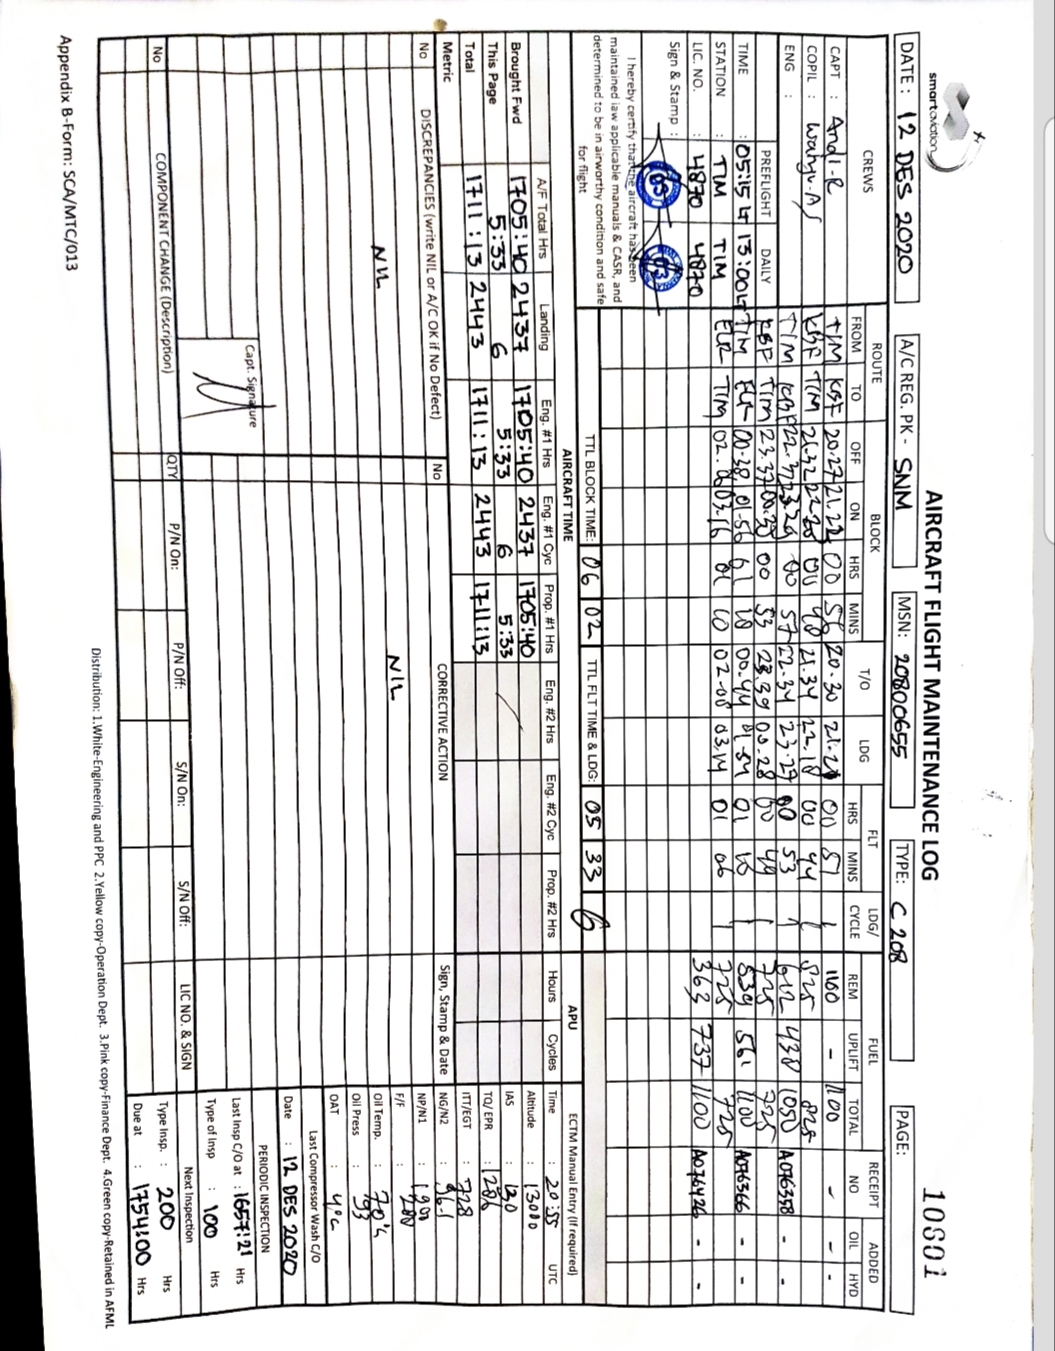 smartaviation
AIRCRAFT FLIGHT MAINTENANCE LOG 10801
DATE : 12 DES 2020 A/C REG. PK - SNM MSN: 20800655 TYPE: C 208 PAGE:
CREWS ROUTE BLOCK T/O LDG FLT LDG/ FUEL RECEIPT ADDED
FROM TO OFF ON HRS MINS HRS MINS CYCLE REM UPLIFT TOTAL NO OIL HYD
CAPT : Andi-R TIM KBF 20.27 21.22 00 20.30 00 51 1 1100 - 1100 - - -
COPIL : TIM 00 21.34 22.18 00 44 825
ENG : TIM 00 57 22.34 23.27 00 53 1 612 438 1050 - -
PREFLIGHT DAILY TIM 00 53 00.28 00 49 725 725
TIME : 05:15 LT 13:00 LT TIM 00.38 01.56 00.44 01.54 01 10 539 561 1100 A076366 - -
STATION : TIM TIM TIM 03.16 10 02.08 03.14 01 06 725 725
LIC. NO. : 4870 4870 363 737 1100 - -
Sign & Stamp :
I hereby certify that the aircraft has been
maintained iaw applicable manuals & CASR, and
determined to be in airworthy condition and safe
for flight
TTL BLOCK TIME: 06 02 TTL FLT TIME & LDG: 05 33 6
AIRCRAFT TIME APU ECTM Manual Entry (If required)
A/F Total Hrs Landing Eng. #1 Hrs Eng. #1 Cyc Prop. #1 Hrs Eng. #2 Hrs Eng. #2 Cyc Prop. #2 Hrs Hours Cycles Time : 20:55 UTC
Brought Fwd 1705:40 2437 1705:40 2437 1705:40 Altitude : 13000
This Page 5:33 6 5:33 6 5:33 IAS : 130
Total 1711:13 2443 1711:13 2443 1711:13 TQ/EPR : 1286
Metric ITT/EGT : 728
No DISCREPANCIES (write NIL or A/C OK if No Defect) No CORRECTIVE ACTION Sign, Stamp & Date NG/N2 : 96.1
NP/N1 : 1900
NIL NIL F/F :
Oil Temp. :
Oil Press : 93
OAT : 4°C
Last Compressor Wash C/O
Date : 12 DES 2020
PERIODIC INSPECTION
Capt. Signature Last Insp C/O at : 1657:21 Hrs
Type of Insp : 100 Hrs
Next Inspection
No COMPONENT CHANGE (Description) QTY P/N On: P/N Off: S/N On: S/N Off: LIC NO. & SIGN Type Insp. : 200 Hrs
Due at : 1754:00 Hrs
Distribution: 1.White-Engineering and PPC 2.Yellow copy-Operation Dept. 3.Pink copy-Finance Dept. 4.Green copy-Retained in AFML
Appendix B-Form: SCA/MTC/013